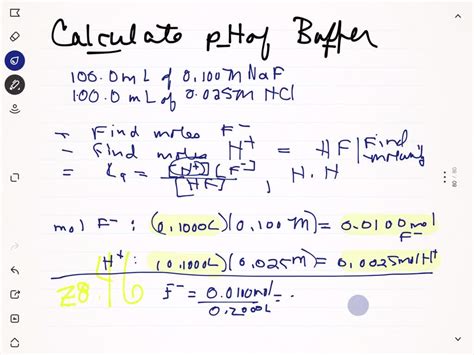 Calculate pH of Buffer
100.0 mL of 0.100M NaF
100.0 mL of 0.025M HCl
- Find moles F⁻
- Find moles H⁺ = HF | Find
= Ka = [H⁺][F⁻] / [HF], H.H
mol F⁻ : (0.1000L)(0.100M) = 0.0100 mol F⁻
H⁺ : (0.1000L)(0.025M) = 0.0025 mol H⁺
F⁻ = 0.0100mol / 0.2000L =